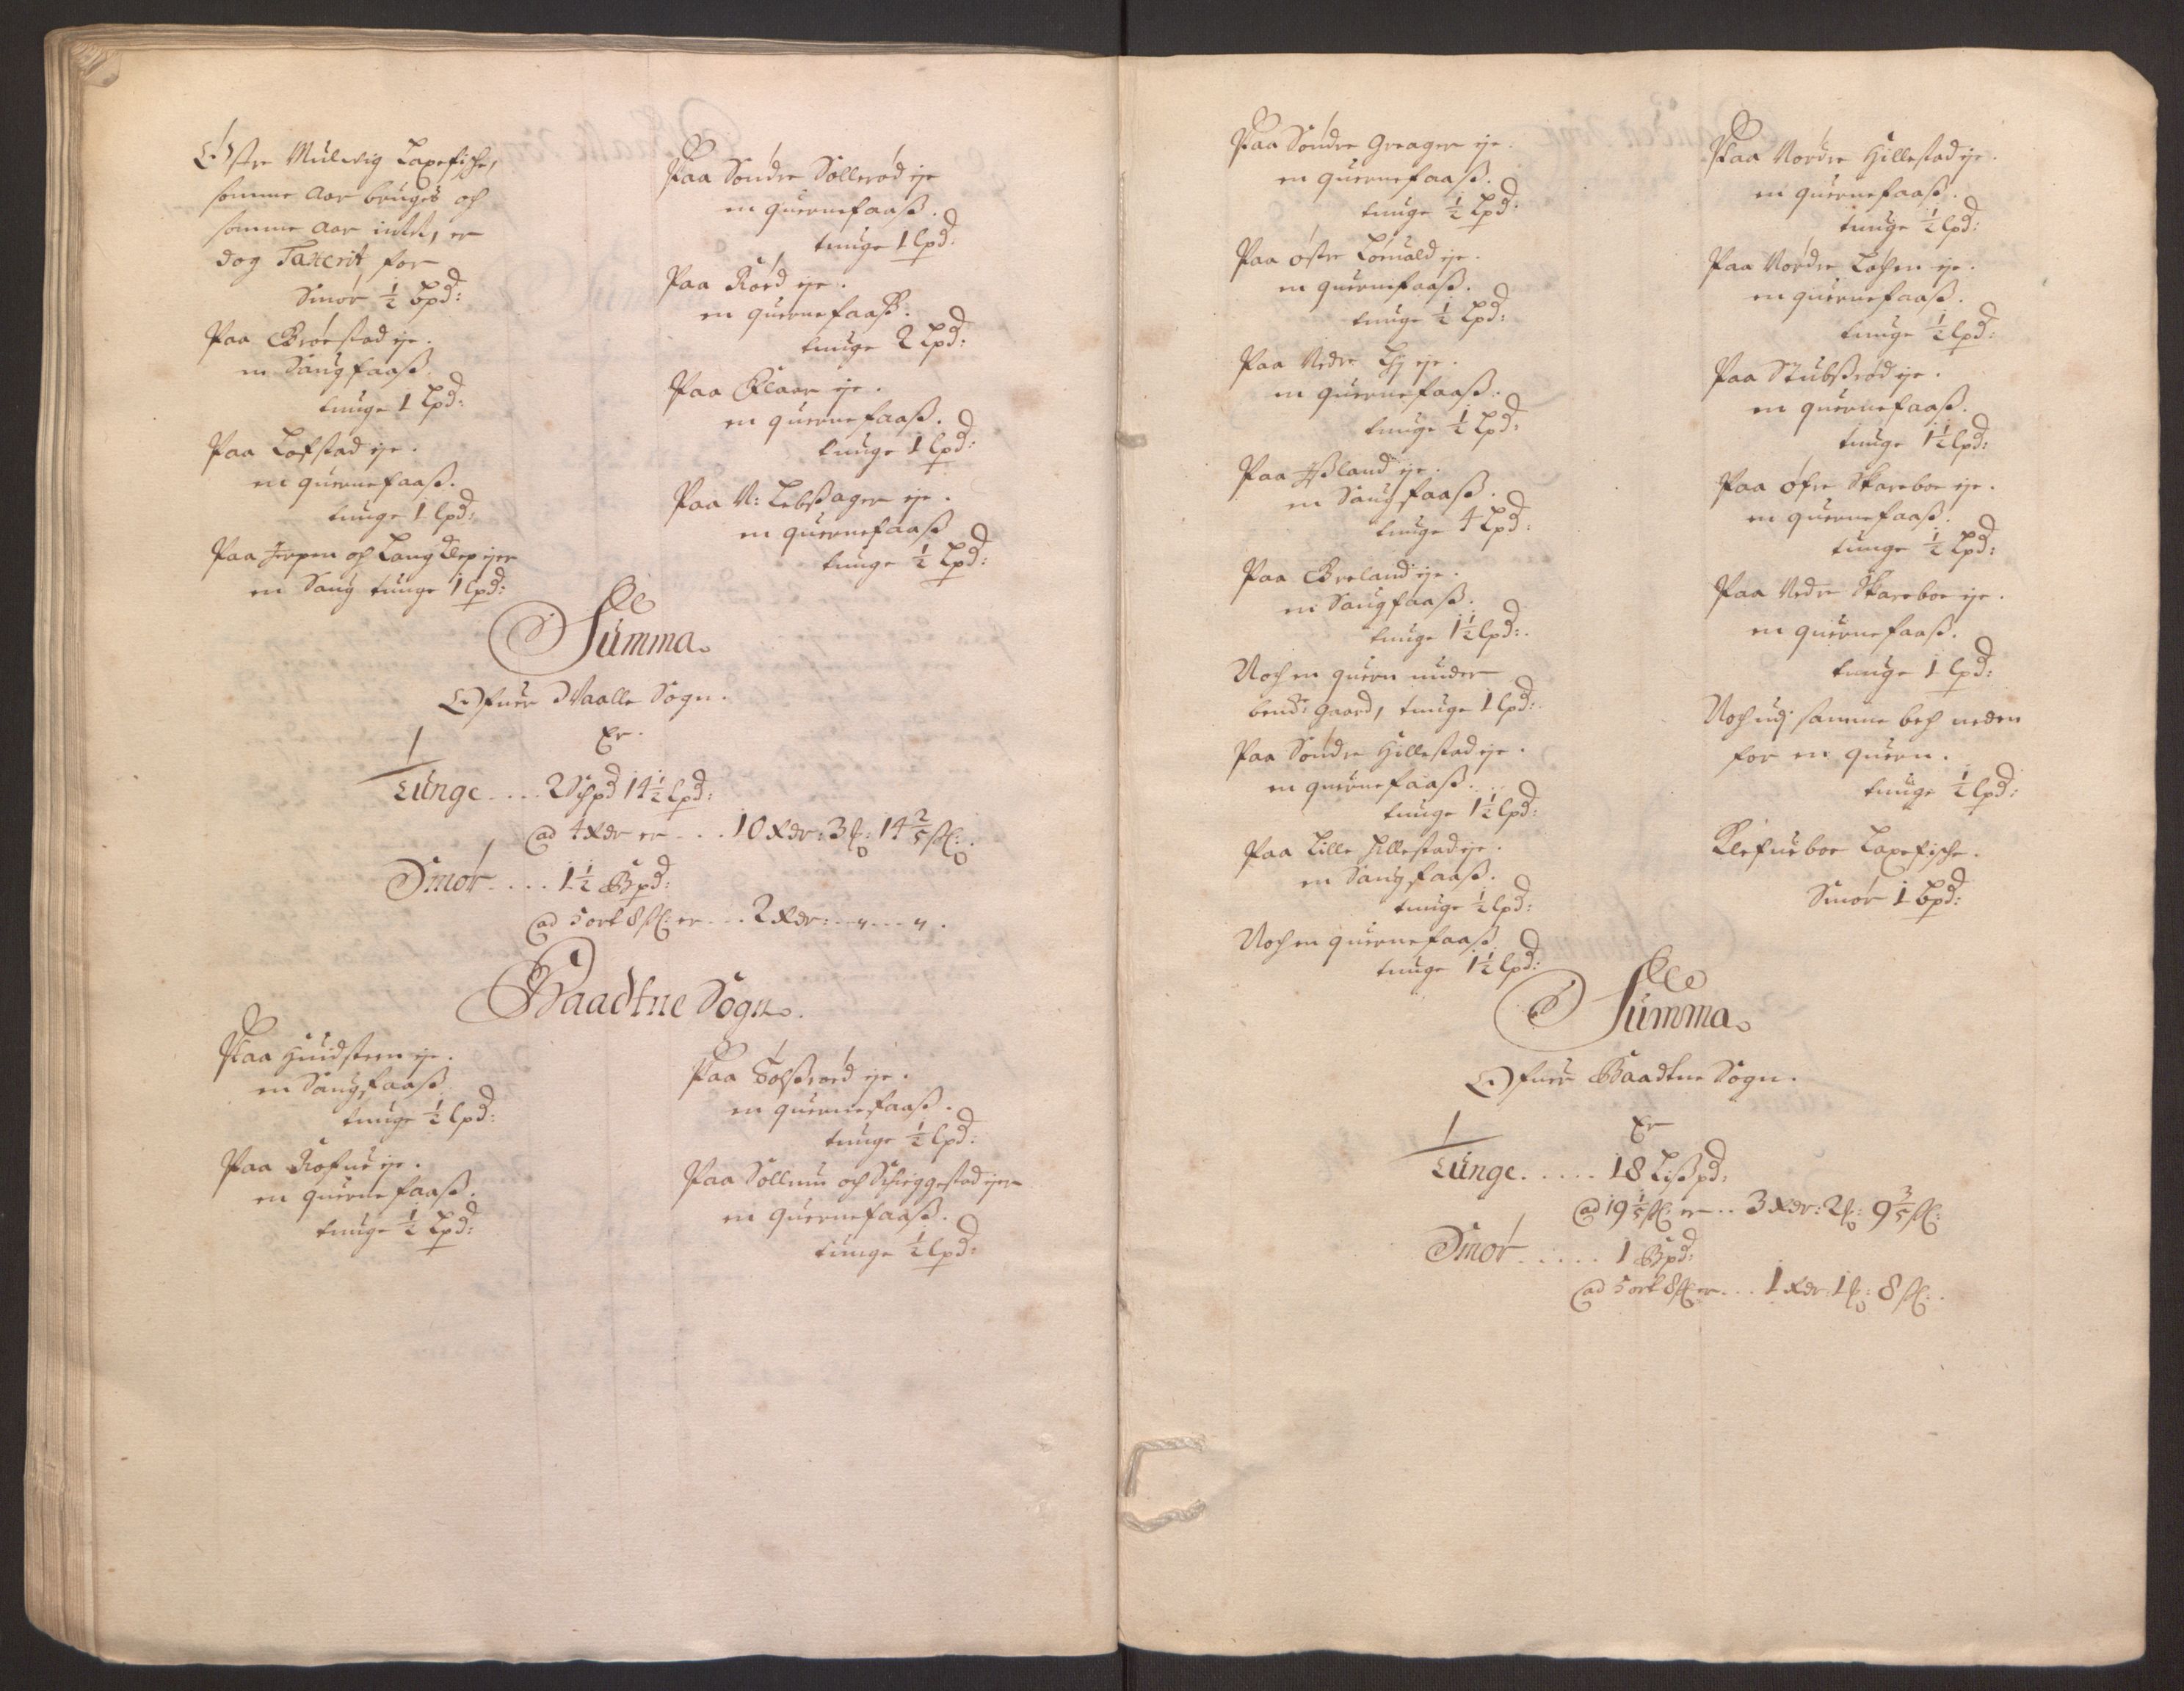 Østre Mulvig Laxefische,
somme Aar bruges och
somme Aar intet, er
dog Taxerit for
Smør ½ bpd:
Paa Brøstad eje.
en Saugfaass
tunge 1 Lpd:
Paa Lofstad eje.
en quernefaass.
tunge 1 lpd:
Paa Jerpen och Langklep ejer
en Saug tunge 1 lpd:
Paa Søndre Sollerød eje
en quernefaass.
tunge 1 lpd:
Paa Rød eje.
en quernefaass.
tunge 2 Lpd:
Paa Klaar eje.
en quernefaass.
tunge 1 lpd:
Paa N: Lebssager eje.
en quernefaass
tunge ½ Lpd:
Summa.
Ofuer Waalle Sogn.
Er.
Tunge .... 2 Schpd 14½ lpd:
ad 4 Rdr er ... 10 Rdr: 3 ƒ: 14 2/5 ſſ:
Smør .... 1½ Bpd:
ad 5 ort 8 ſſ: er ... 2 Rdr: - „ - - „ .
Baadtne Sogn.
Paa Huidsteen eje.
en Saugfaass
tunge ½ lpd:
Paa Rofue eje.
en quernefaass.
tunge ½ Lpd:
Paa Tolssrød eje.
en quernefaass.
tunge ½ lpd:
Paa Sollum och Schieggestad ejer
en quernefaass.
tunge ½ lpd:
Paa Søndre Greager eje.
en quernefaass.
tunge ½ Lpd:
Paa østre Lønald eje.
en quernefaass.
tunge ½ Lpd:
Paa Nedre Ly eje.
en quernefaass.
tunge ½ Lpd:
Paa Jssland eje.
en Saugfaass.
tunge 4 Lpd:
Paa Breland eje.
en Saugfaass.
tunge 1½ lpd:
Noch en quern under
bende Gaard, tunge 1 lpd:
Paa Søndre Hillestad eje.
en quernefaass.
tunge 1½ lpd:
Paa Lille Hillestad eje.
en Saugfaass.
tunge ½ lpd:
Noch en quernefaass
tunge 1½ lpd:
Paa Nordre Hillestad eje.
en quernefaass.
tunge ½ lpd:
Paa Nordre Løchen eje.
en quernefaass.
tunge ½ lpd:
Paa Stubssrød eje.
en quernefaass.
tunge 1½ lpd:
Paa øfre Skareboe eje.
en quernefaass.
tunge ½ Lpd:
Paa Nedre Skareboe eje.
en quernefaass.
tunge 1 lpd:
Noch udj samme bech neden
for en quern.
tunge ½ lpd:
Klefueboe Laxefische.
Smør 1 bpd:
Summa.
Ofuer Baadtne Sogn.
Er
Tunge ..... 18 Lisspd:
ad 19 1/5 ſſ: er .. 3 Rdr: 2 ƒ: 9 3/5 ſſ:
Smør ..... 1 Bpd:
ad 5 ort 8 ſſ er ... 1 Rdr 1 ƒ: 8 ſſ: